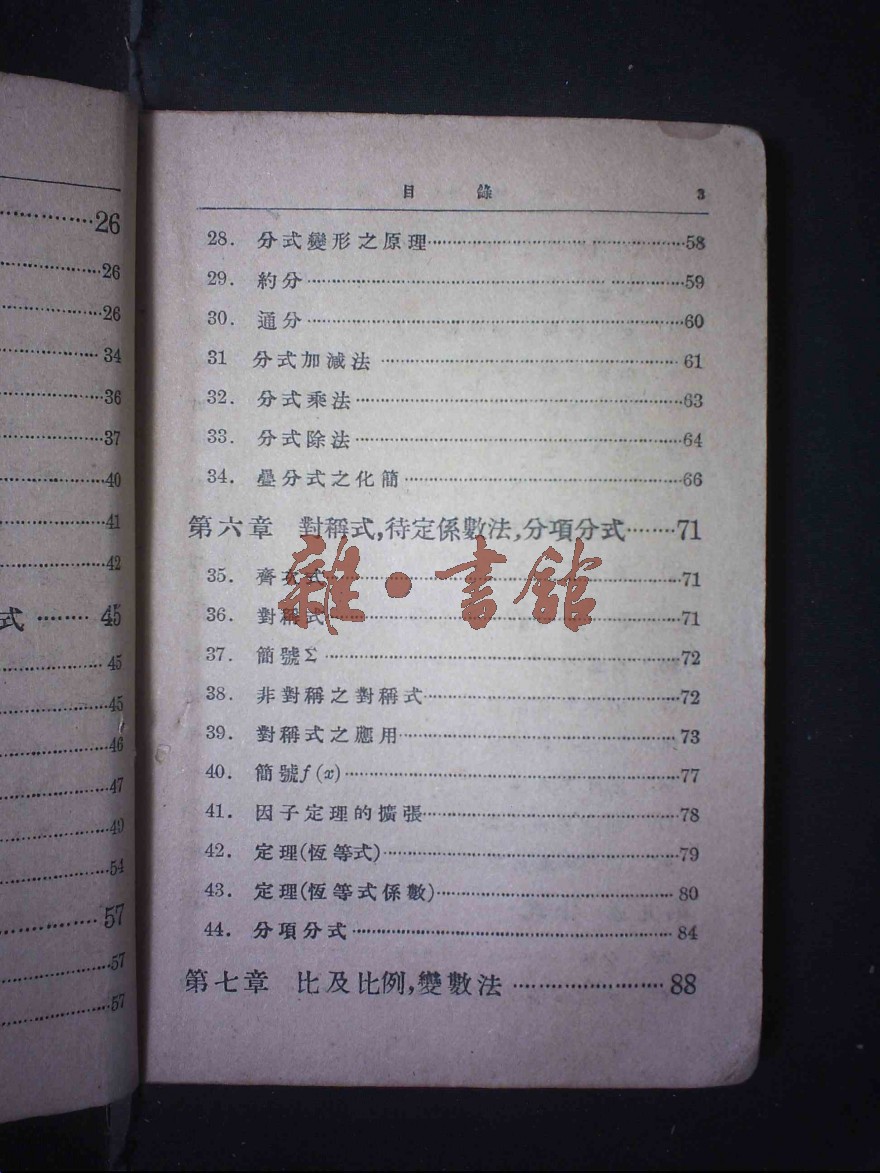 26
26
26
34
36
37
40
41
42
式⋯⋯45
45
45
46
47
49
54
57
57
57
目 錄 3
28. 分式變形之原理⋯⋯58
29. 約分⋯⋯59
30. 通分⋯⋯60
31 分式加減法⋯⋯61
32. 分式乘法⋯⋯63
33. 分式除法⋯⋯64
34. 疊分式之化簡⋯⋯66
第六章 對稱式,待定係數法,分項分式⋯⋯71
35. 齊次式⋯⋯71
36. 對稱式⋯⋯71
雜·書館
37. 簡號Σ⋯⋯72
38. 非對稱之對稱式⋯⋯72
39. 對稱式之應用⋯⋯73
40. 簡號f(x)⋯⋯77
41. 因子定理的擴張⋯⋯78
42. 定理(恆等式)⋯⋯79
43. 定理(恆等式係數)⋯⋯80
44. 分項分式⋯⋯84
第七章 比及比例,變數法⋯⋯88